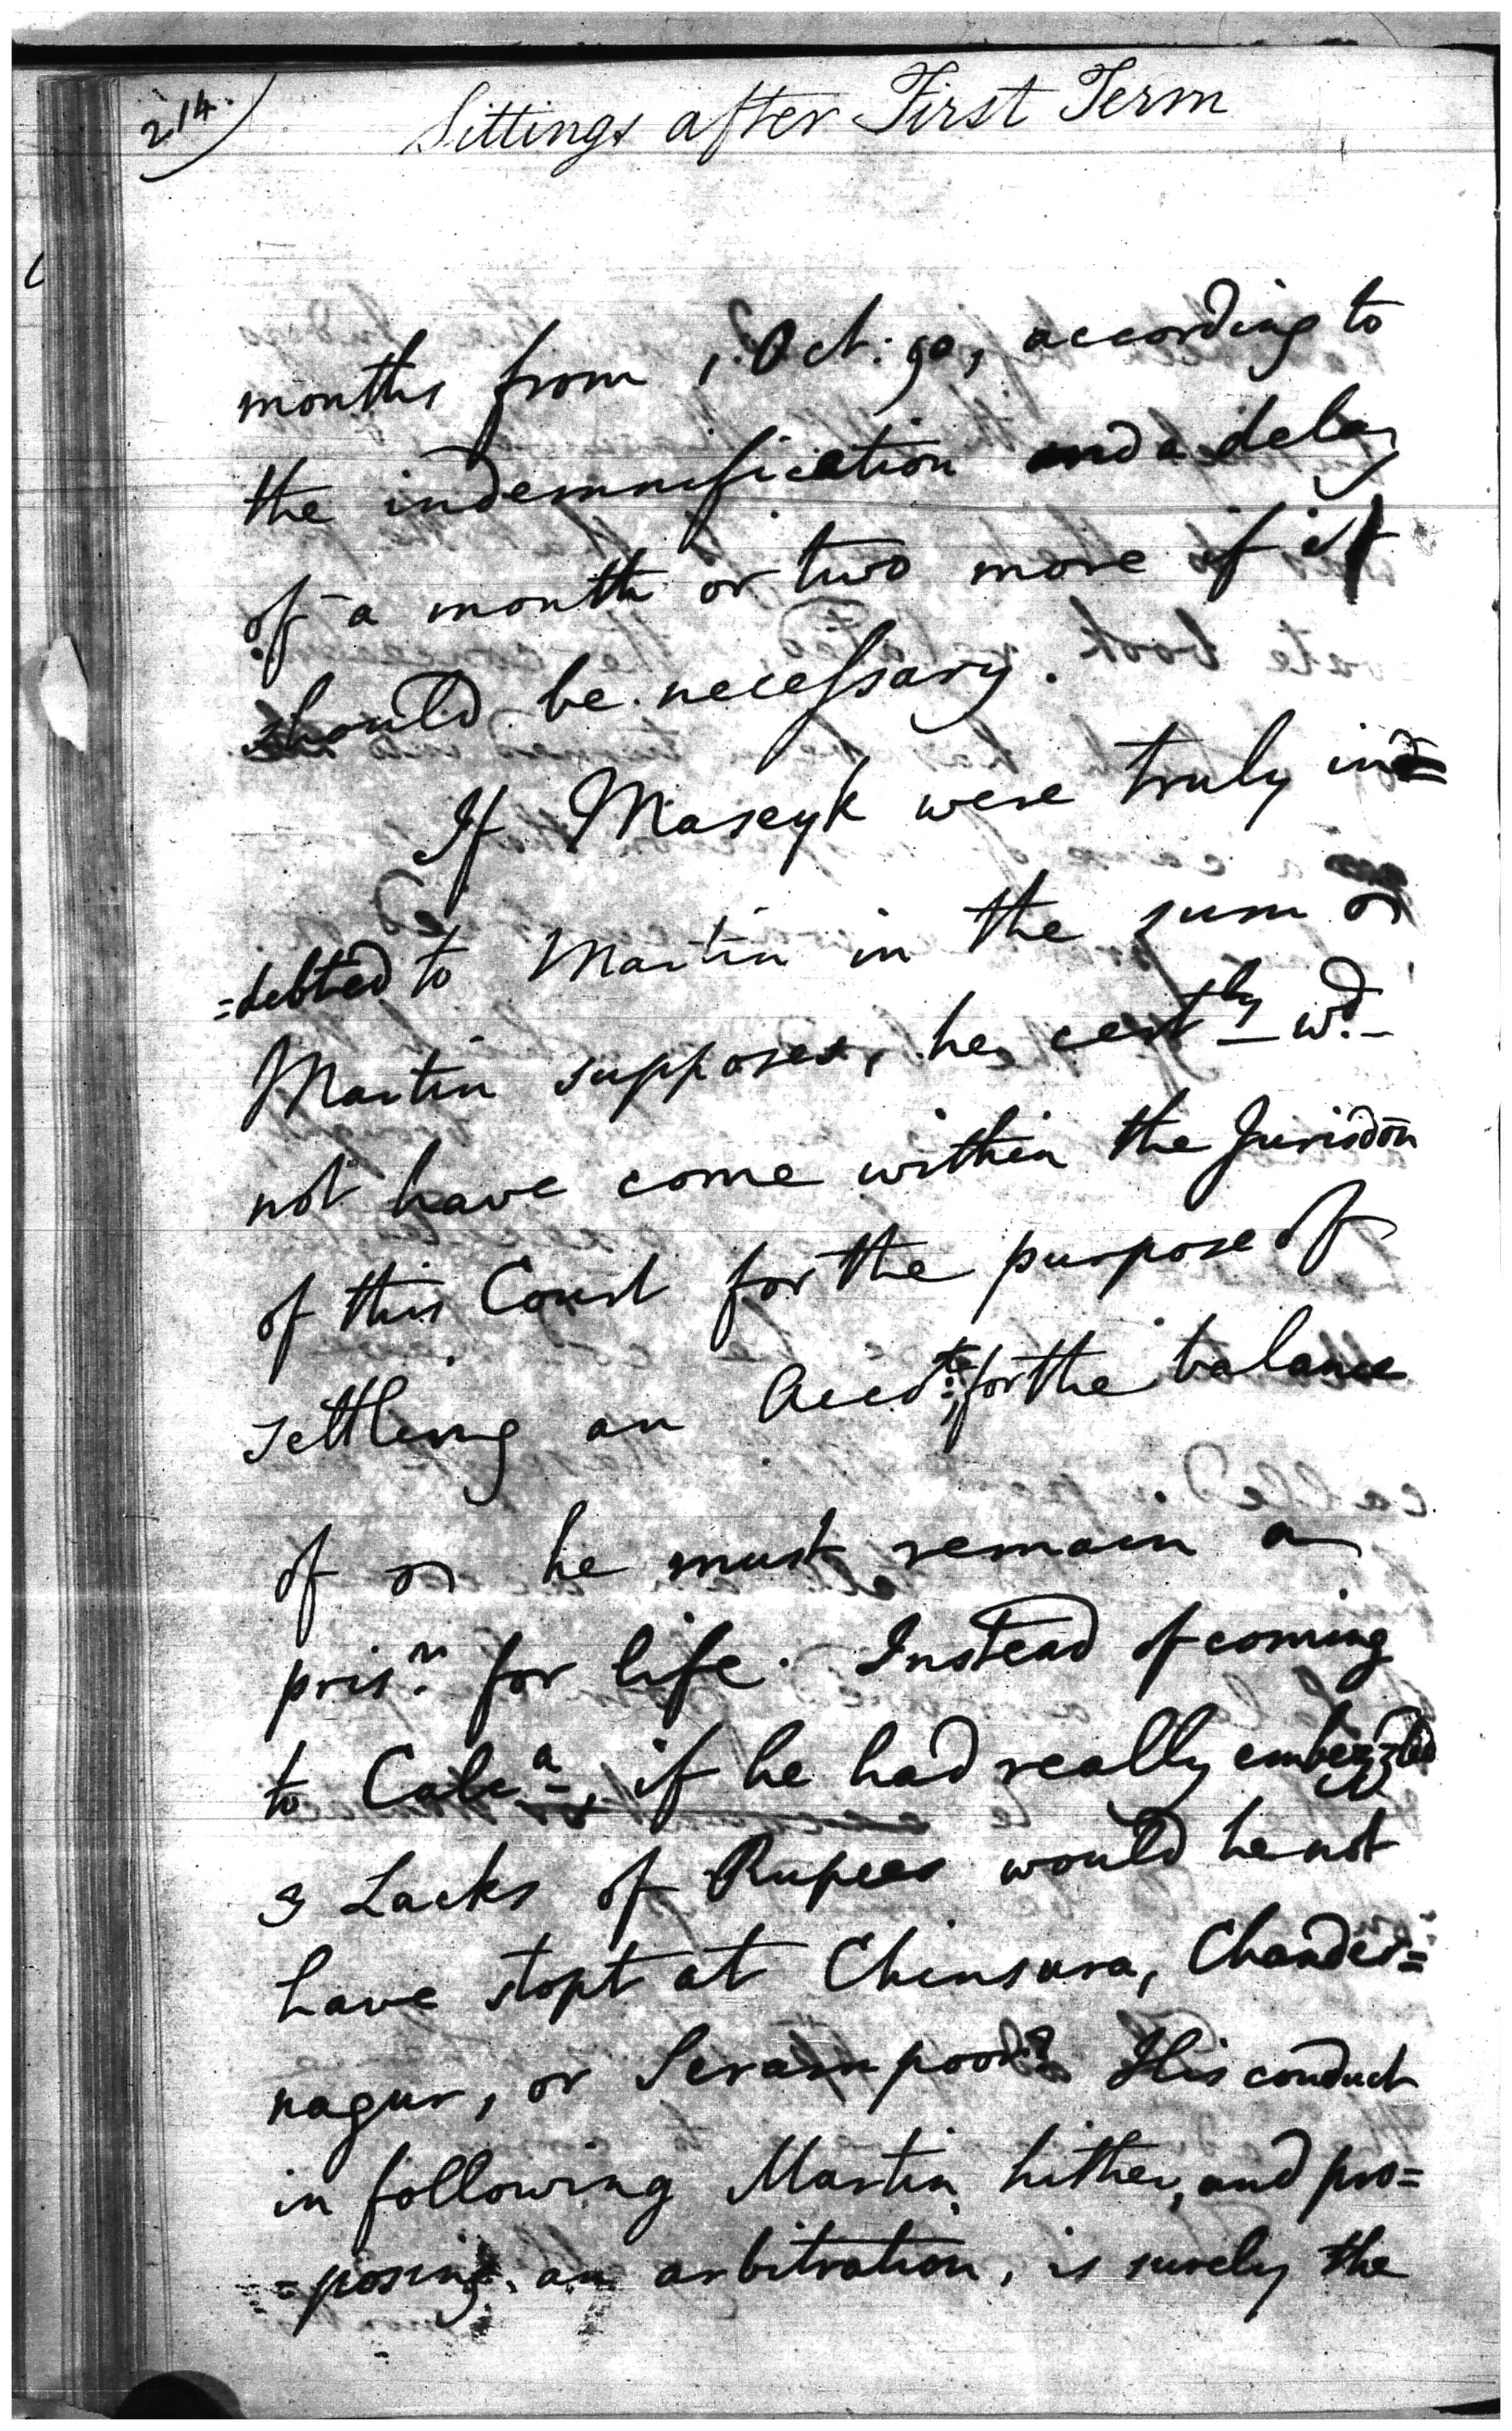 214.)
Sittings after First Term
months from 1. Oct: 90, according to
the indemnification and a delay
of a month or two more if it
should be necessary.
If Maseyk were truly in=
=debted to Martin in the sum
Martin supposes, he certly wd.
not have come within the Jurisdon
of this Court for the purpose of
settling an Acct; for the balance
of he must remain a
prisr. for life. Instead of coming
to Calca, if he had really embezzled
3 Lacks of Rupees would he not
have stopt at Chinsura, Chander=
nagur, or Serampoor? His conduct
in following Martin hither, and pro=
=posing an arbitration, is surely the